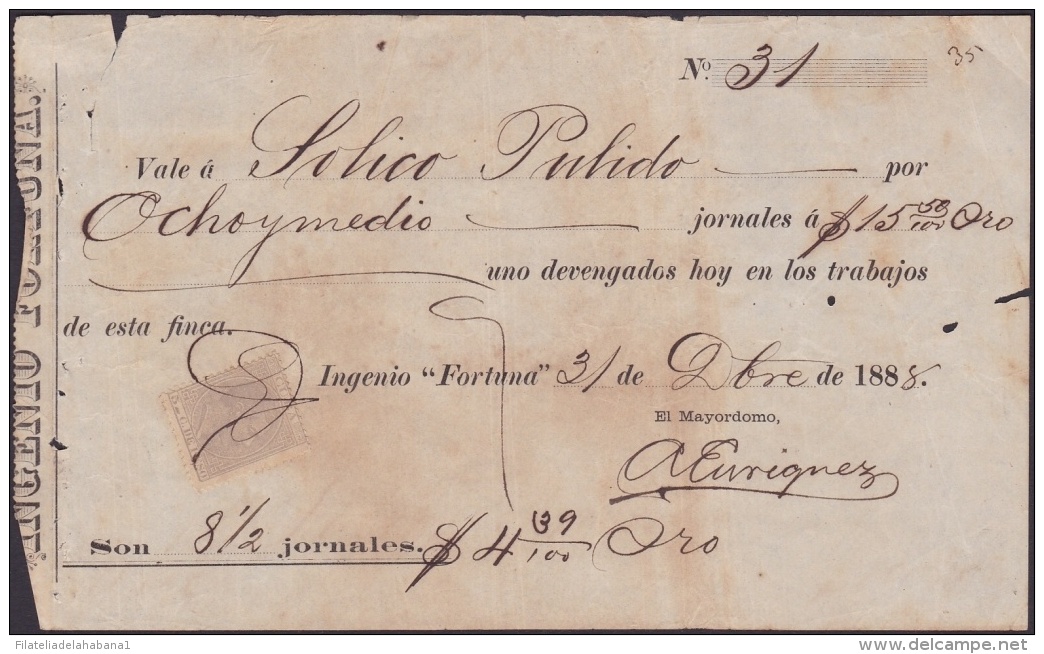 Nº 31
35
Vale á Solico Pulido por
Ochoymedio jornales á $15 50/100 Oro
uno devengados hoy en los trabajos
de esta finca.
Ingenio "Fortuna" 31 de Dbre de 1888.
El Mayordomo,
A Enriquez
Son 8 1/2 jornales. $4 39/100 Oro
INGENIO "FORTUNA."
Filateliadelahabana1
delcampe.net